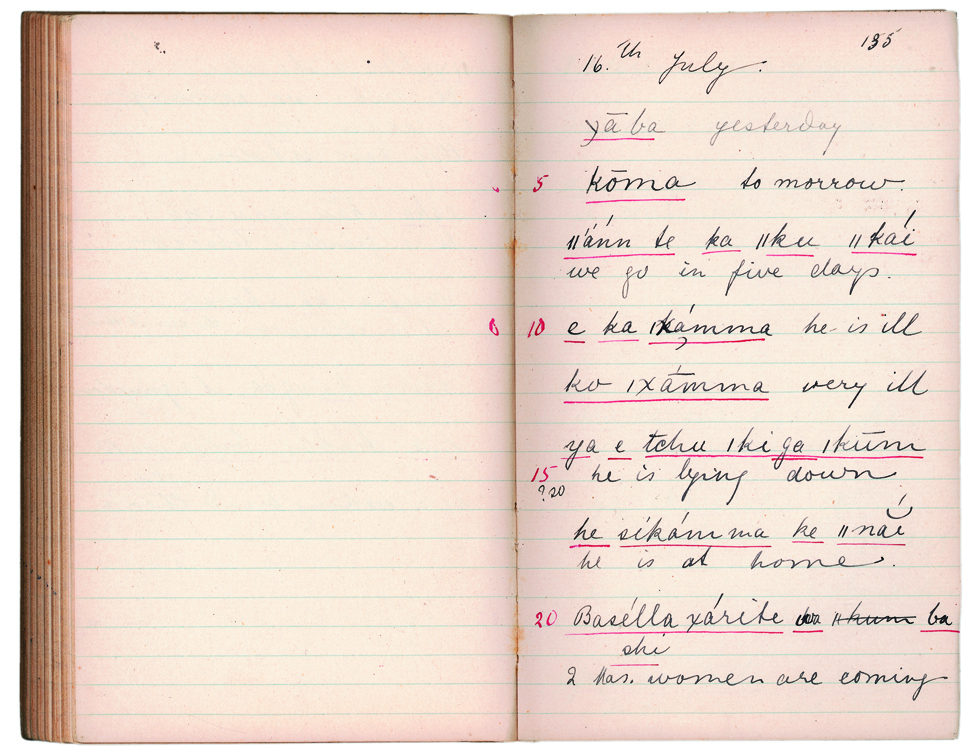 135
16.th July.
χāba yesterday
5 kōma to morrow.
ǁánn te ka ǁku ǁkái
we go in five days.
10 e ka ǀkámma he is ill
ko ǀxāmma very ill
ya e tchu ǀki ga ǀkūm
15 he is lying down
? 20
he síkámma ke ǁnăí
he is at home.
20 Basélla xárite wa ǁkum ba
shi
2 Mas. women are coming